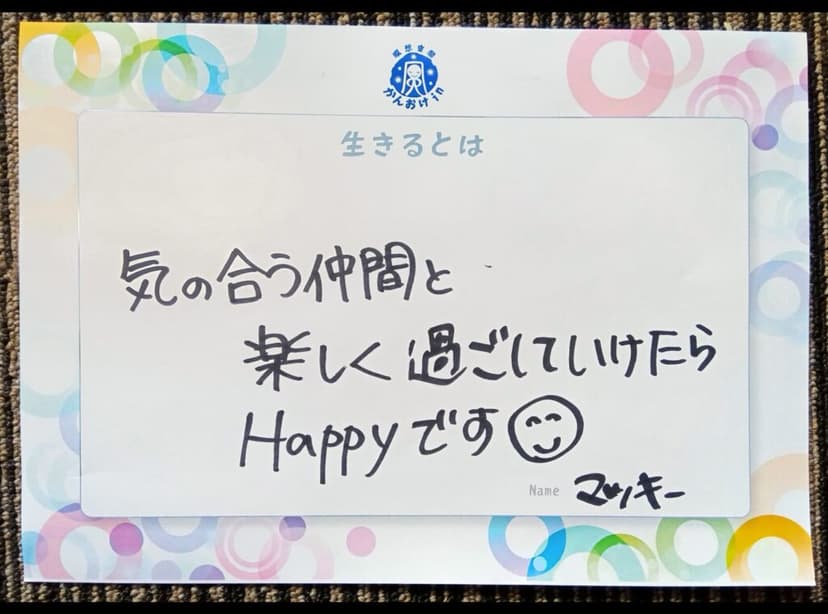 瞑想空間
かんおけin
生きるとは
気の合う仲間と
楽しく過ごしていけたら
Happyです
Name マッキー